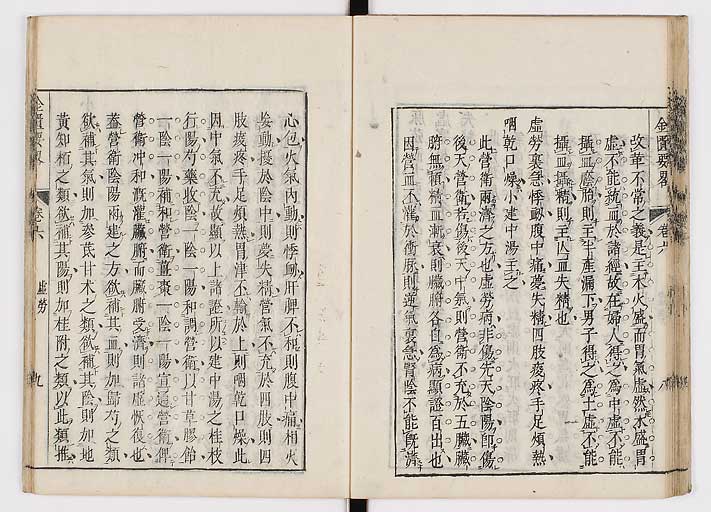 金匱要畧
卷六
八
改革不常之義是主木火盛而胃氣虛然水盛胃
虛不能統血於諸經故在婦人得之為中虛不能
攝血蔭胎則主半產漏下男子得之為土虛不能
攝血攝精則主亡血失精也
虛勞裏急悸衂腹中痛夢失精四肢痠疼手足煩熱
咽乾口燥小建中湯主之
此營衛兩濟之方也虛勞病非傷先天陰陽卽傷
後天營衛若傷後天中氣則營衛不充於五臟臟
腑無賴精血漸衰則臟腑各自為病顯證百出也
因營血不灌於衝脈則逆氣裏急腎陰不能旣濟
心包火氣內動則悸衂肝脾不和則腹中痛相火
妄動擾於陰中則夢失精營氣不充於四肢則四
肢痠疼手足煩熱胃津不輸於上則咽乾口燥此
因中氣不充故顯以上諸證所以建中湯之桂枝
行陽芍藥收陰一陰一陽和調營衛以甘草膠飴
一陰一陽補和營衛薑棗一陰一陽宣通營衛俾
營衛冲和溉灌臟腑而臟腑受濟則諸虛恢復也
蓋營衛陰陽兩建之方欲補其血則加歸芍之類
欲補其氣則加參芪甘朮之類欲補其陰則加地
黃知柏之類欲補其陽則加桂附之類以此類推
金匱要畧
卷六
虛勞
九